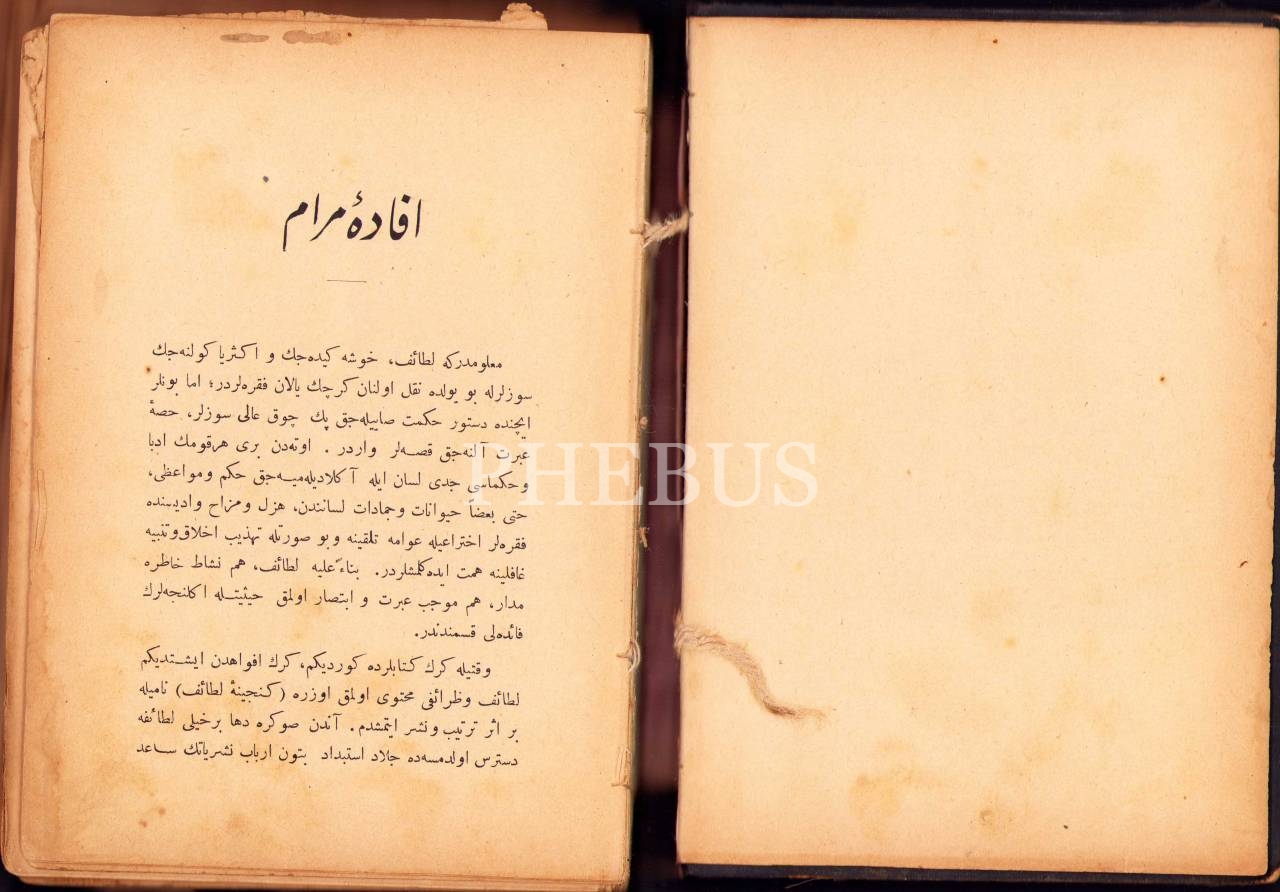 افادهٔ مرام
معلومدركه لطائف، خوشه كيده‌جك و اكثريا كولنه‌جك
سوزلرله بو يولده نقل اولنان كرچك يالان فقره‌لردر؛ اما بونلر
ايچنده دستور حكمت صاييله‌جق پك چوق عالى سوزلر، حصهٔ
عبرت آلنه‌جق قصه‌لر واردر. اوته‌دن برى هرقومك ادبا
وحكماسى جدى لسان ايله آكلاديله‌ميه‌جق حكم ومواعظى،
حتى بعضاً حيوانات وجمادات لسانندن، هزل ومزاح واديسنده
فقره‌لر اختراعيله عوامه تلقينه وبو صورتله تهذيب اخلاق وتنبيه
غافلينه همت ايده‌كلمشلردر. بناءً عليه لطائف، هم نشاط خاطره
مدار، هم موجب عبرت و ابتصار اولمق حيثيتـله اكلنجه‌لرك
فائده‌لى قسمندندر.
وقتيله كرك كتابلرده كورديكم، كرك افواهدن ايشتديكم
لطائف وظرائفى محتوى اولمق اوزره (كنجينهٔ لطائف) ناميله
بر اثر ترتيب ونشر ايتمشدم. آندن صوكره دها برخيلى لطائفه
دسترس اولدمسه‌ده جلاد استبداد بتون ارباب نشرياتك ساعد
PHEBUS